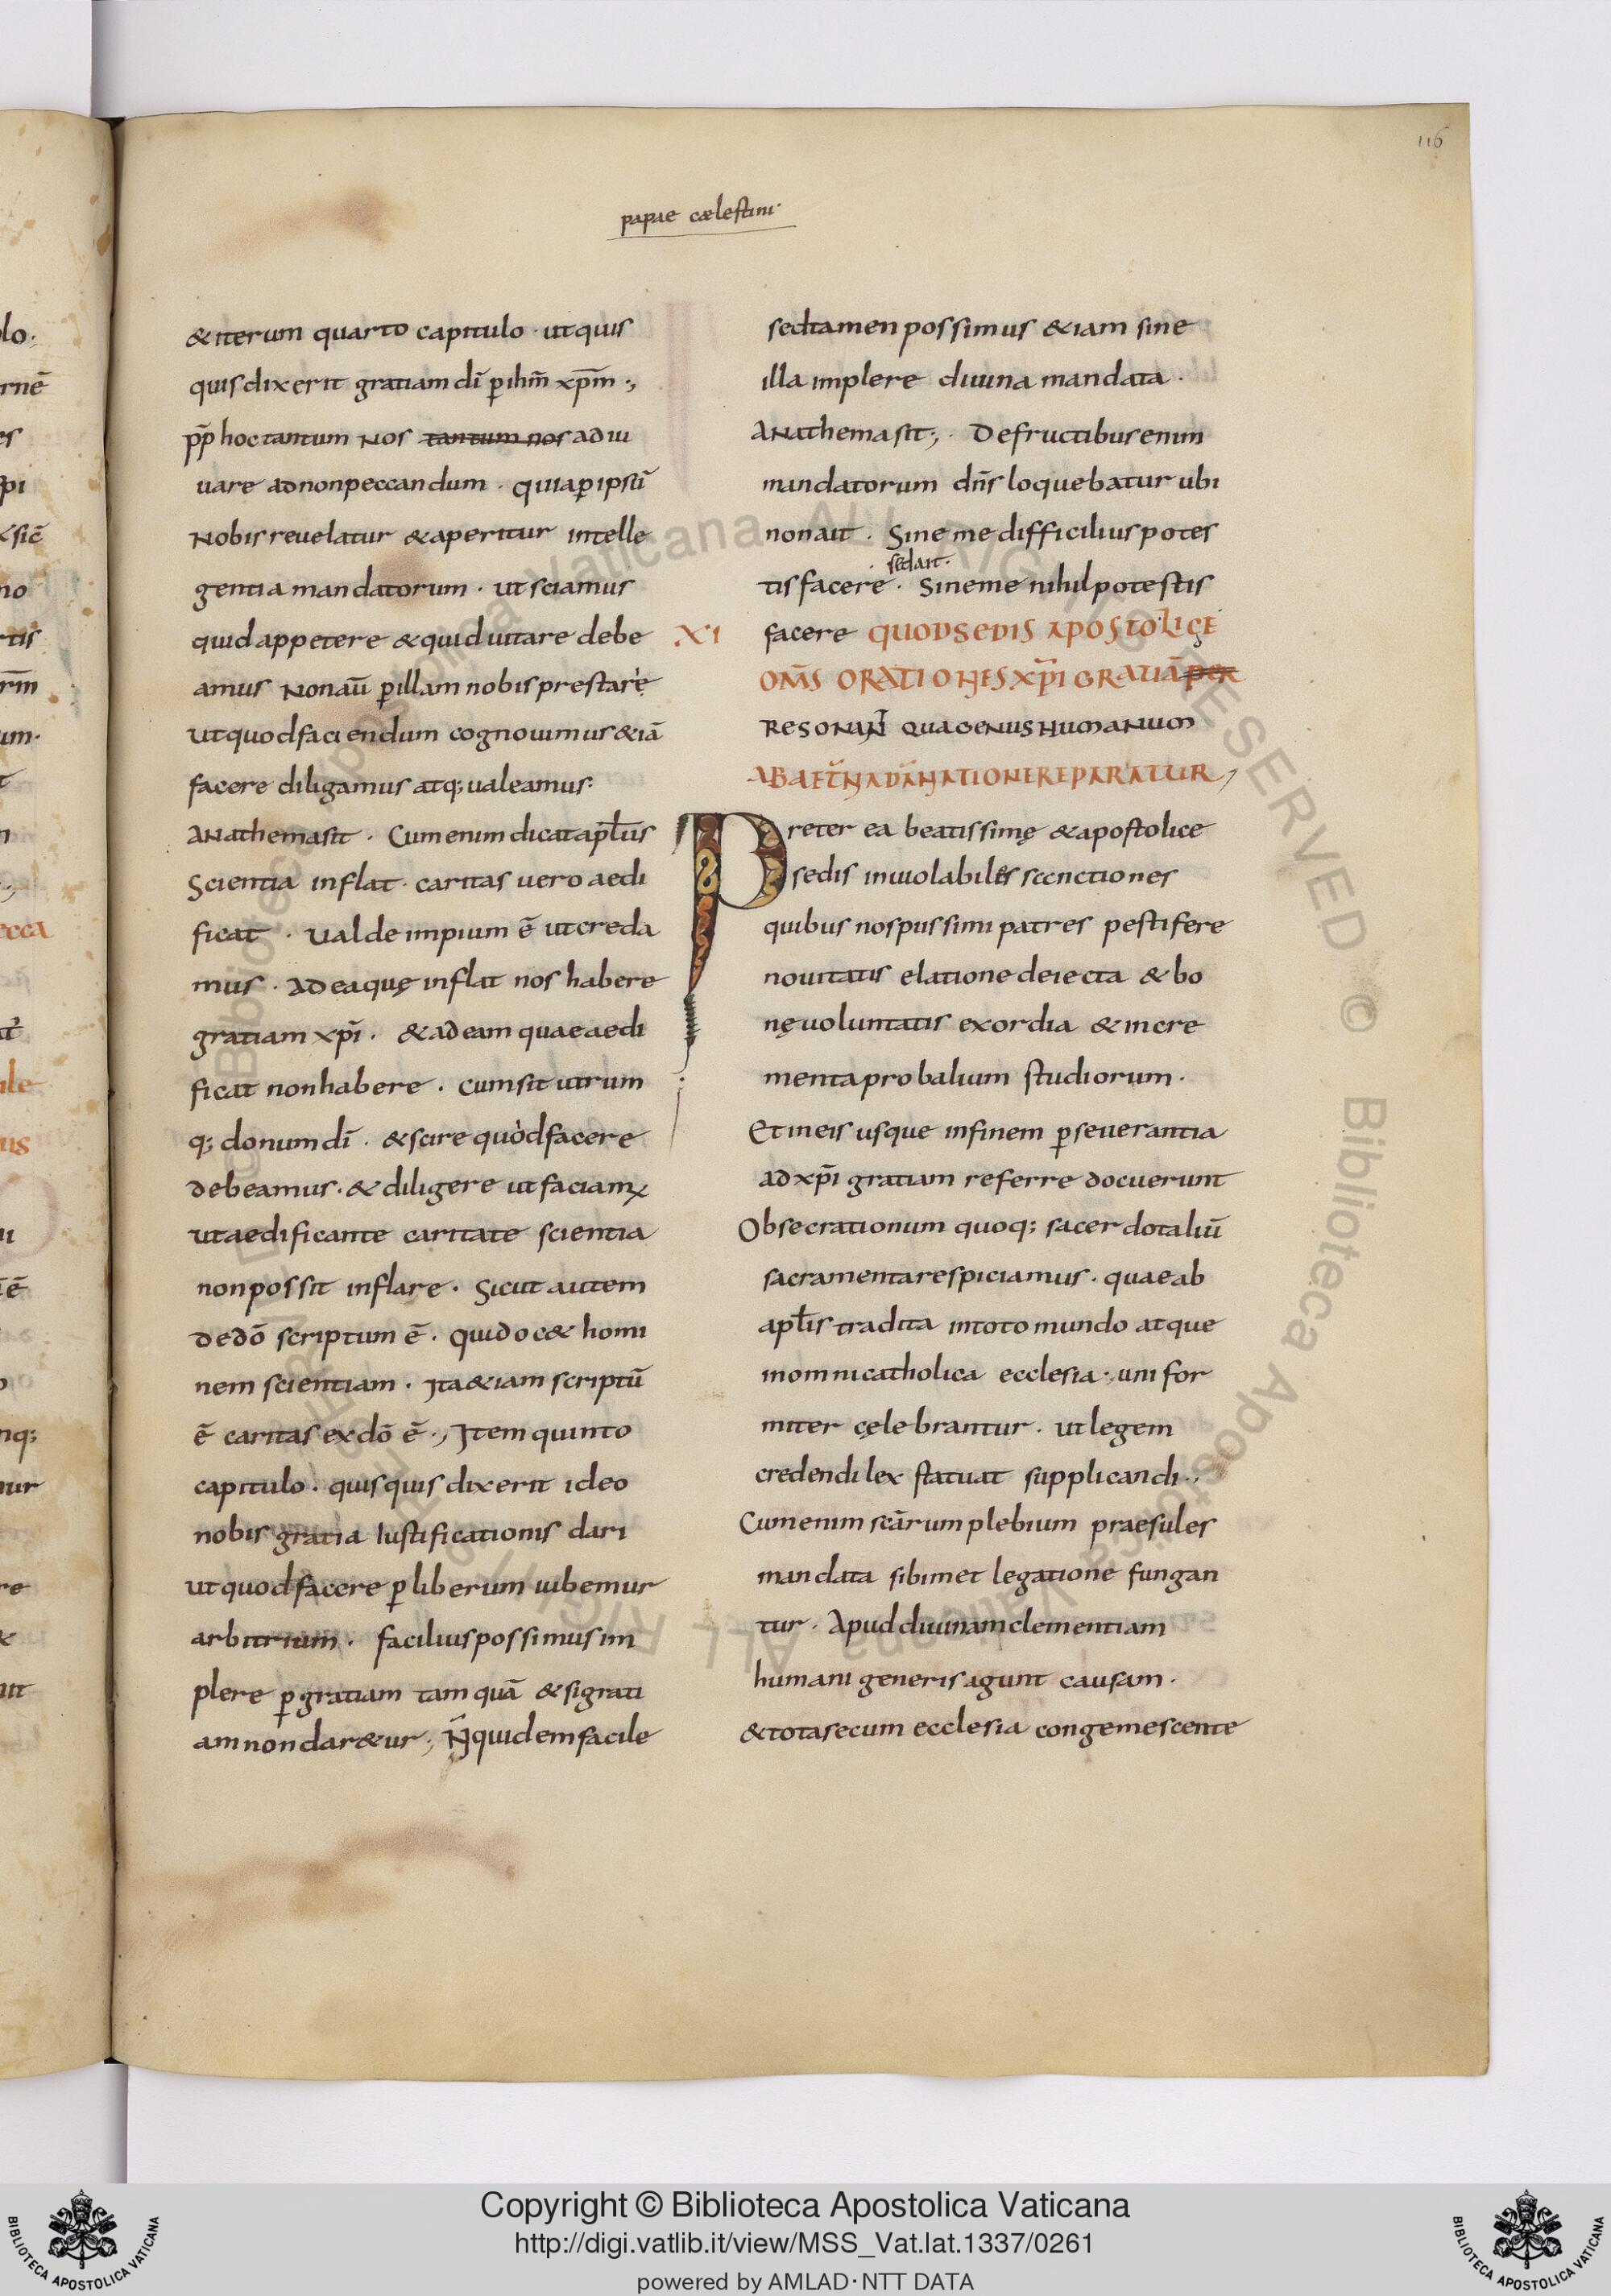 116
papae cælestini·
& iterum quarto capitulo · ut quis
quis dixerit gratiam dī ꝑ ihm̄ xp̄m ·,
pp̄ hoc tantum nos tantum nos adiu
uare ad non peccandum · quia ꝑ ipsū
Nobis reuelatur & aperitur intelle
gentia mandatorum · ut sciamus
quid appetere & quid uitare debe
amus Non aū ꝑ illam nobis prestare
ut quod faciendum cognouimus &iā
facere diligamus atq; ualeamus:
Anathema sit · Cum enim dicat apl̄us
Scientia inflat · caritas uero aedi
ficat · Ualde impium ē ut creda
mus · Ad ea quę inflat nos habere
gratiam xp̄i · & ad eam quae aedi
ficat non habere · cum sit utrum
q; donum dī · & scire quòd facere
debeamus · & diligere ut faciamꝰ
ut aedificante caritate scientia
non possit inflare · Sicut autem
de dō scriptum ē · qui doc& homi
nem scientiam · Ita &iam scriptū
ē caritas ex dō ē ·, Item quinto
capitulo · quisquis dixerit ideo
nobis gratia Iustificationis dari
ut quod facere ꝑ liberum iubemur
arbitrium · facilius possimus im
plere ꝑ gratiam tam quā & si grati
am non dar&ur ·, N̄ quidem facile
sed tamen possimus &iam sine
illa implere diuina mandata ·
Anathema sit ·, · De fructibus enim
mandatorum dn̄s loquebatur ubi
non ait · Sine me difficilius potes
· sed ait ·
tis facere · Sine me nihil potestis
XI facere QUOD SEDIS APOSTOLICĘ
OM̄S ORATIONES XP̄I GRATIĀ PER
RESONAN̄ QUA GENUS HUMANUM
AB AET̄NA DĀNATIONE REPARATUR,
Preter ea beatissimę & apostolice
sedis inuiolabiles sccnctiones
quibus nos piissimi patres pestifere
nouitatis elatione deiecta & bo
nę uoluntatis exordia & incre
menta probalium studiorum ·
Et in eis usque in finem ꝑseuerantia
ad xp̄i gratiam referre docuerunt
Obsecrationum quoq; sacerdotaliū
sacramenta respiciamus · quae ab
apl̄is tradita in toto mundo atque
in omni catholica ecclesia ·, unifor
miter cęlebrantur · ut legem
credendi lex statuat supplicandi ·,
Cum enim scārum plebium praesules
mandata sibimet legatione fungan
tur · Apud diuinam clementiam
humani generis agunt causam ·
& tota secum ecclesia congemescente
Copyright © Biblioteca Apostolica Vaticana
http://digi.vatlib.it/view/MSS_Vat.lat.1337/0261
powered by AMLAD·NTT DATA
BIBLIOTECA APOSTOLICA VATICANA
BIBLIOTECA APOSTOLICA VATICANA